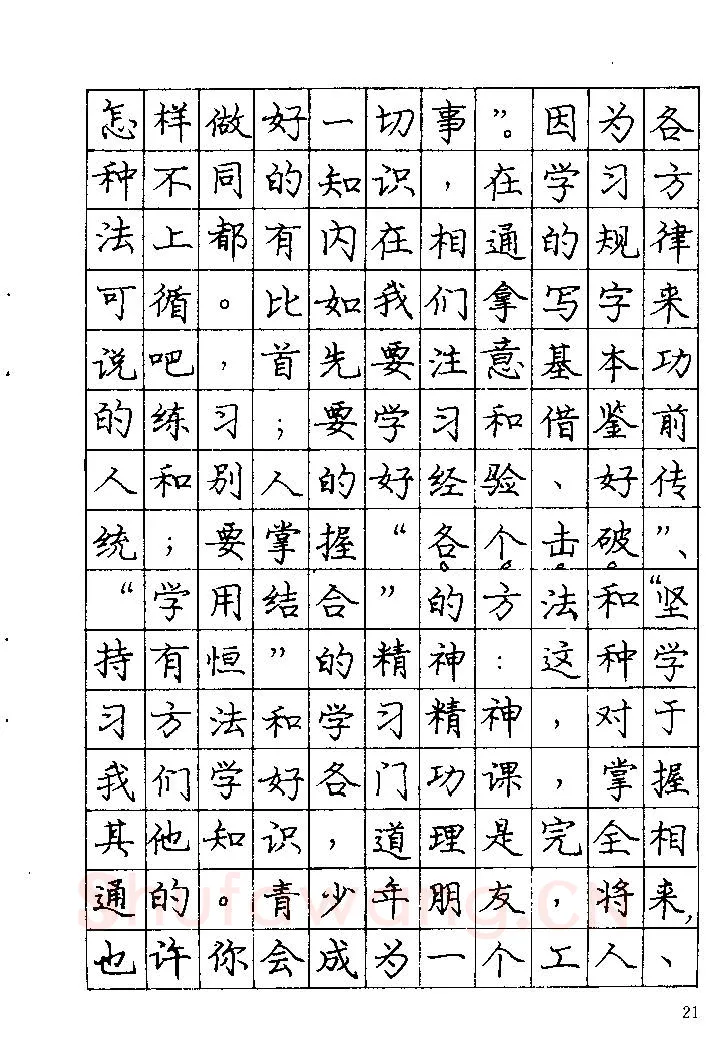 怎样做好一切事”。因为各
种不同的知识，在学习方
法上都有内在相通的规律
可循。比如我们拿写字来
说吧，首先要注意基本功
的练习；要学习和借鉴前
人和别人的好经验、好传
统；要掌握“各个击破”、
“学用结合”的方法和“坚
持有恒”的精神：这种学
习方法和学习精神，对于
我们学好各门功课，掌握
其他知识，道理是完全相
通的。青少年朋友，将来，
也许你会成为一个工人、
Shufawang.CN
21